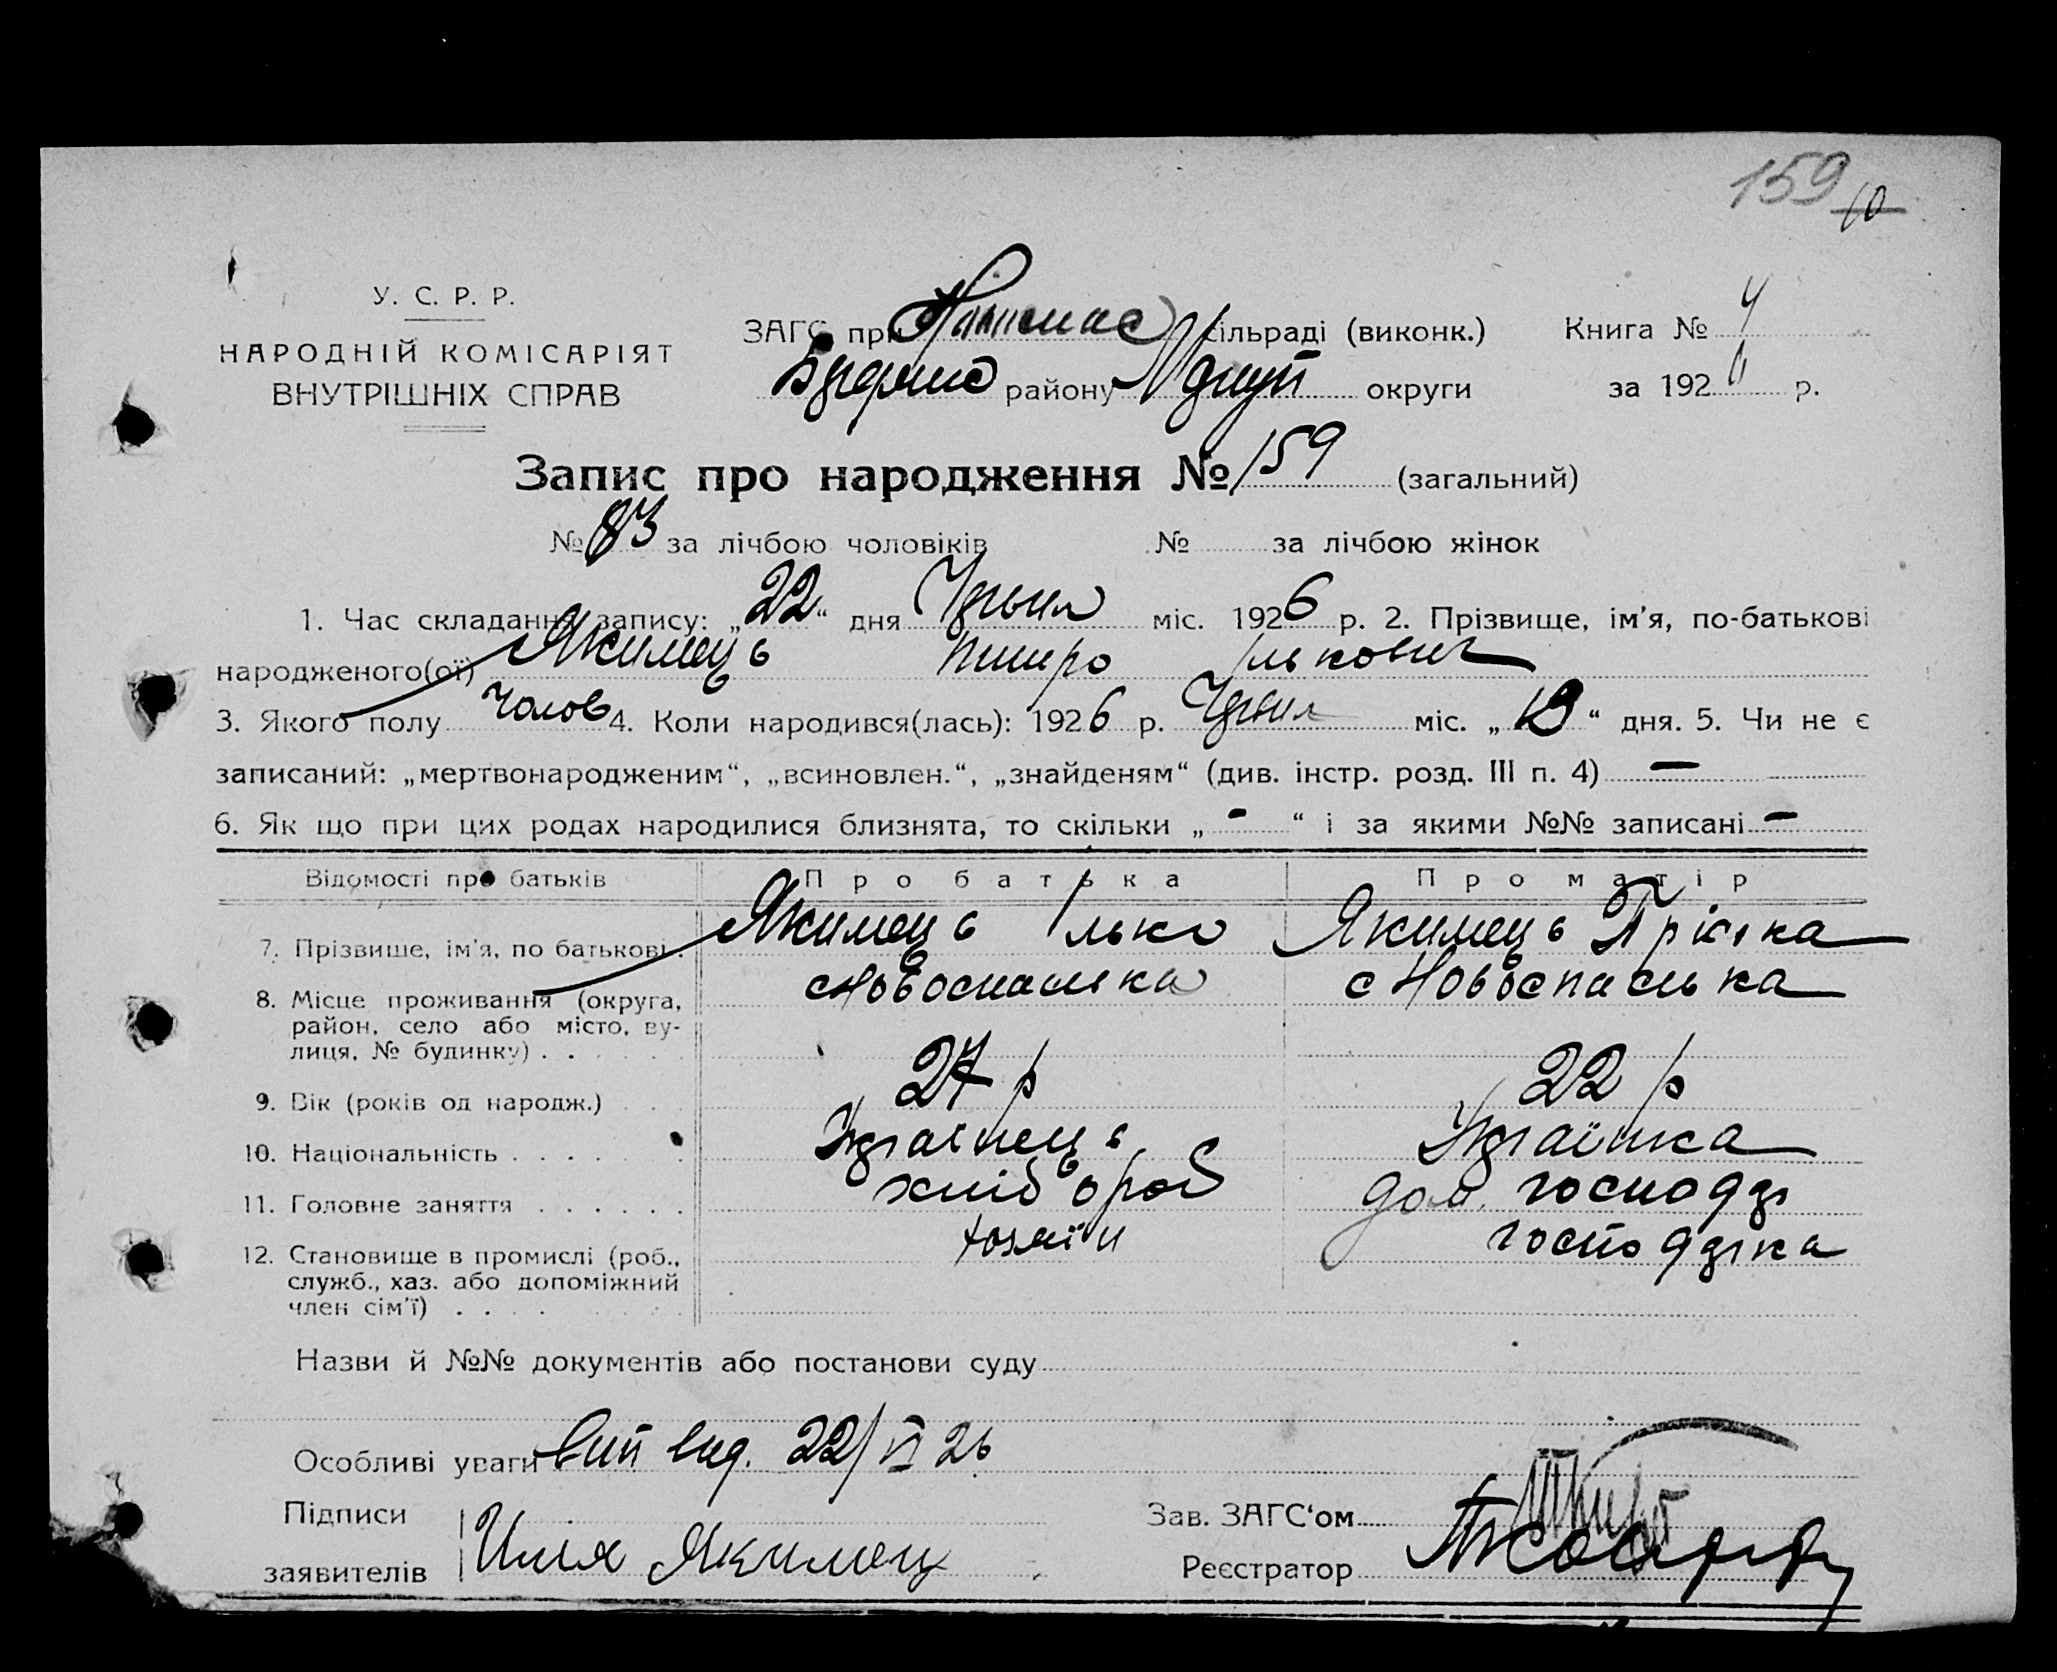 159 10
У. С. Р. Р.
НАРОДНІЙ КОМІСАРІЯТ
ВНУТРІШНІХ СПРАВ
ЗАГС при сільраді (виконк.) Книга №
району округи за 1926 р.
Запис про народження № 159 (загальний)
№ 83 за лічбою чоловіків № за лічбою жінок
1. Час складання запису: „22“ дня Червня міс. 1926 р. 2. Прізвище, ім'я, по-батькові
народженого(ої) Якимець Ількович
3. Якого полу Чолов 4. Коли народився(лась): 1926 р. Червня міс. „ “ дня. 5. Чи не є
записаний: „мертвонародженим“, „всиновлен.“, „знайденям“ (див. інстр. розд. III п. 4) —
6. Як що при цих родах народилися близнята, то скільки „ - “ і за якими №№ записані —
Відомості про батьків Про батька Про матір
7. Прізвище, ім'я, по батькові. Якимець Ілько Якимець Пріська
8. Місце проживання (округа, с Новоспаська с Новоспаська
район, село або місто, ву-
лиця, № будинку) . . . . . .
9. Вік (років од народж.) . . . 27 р 22 р
10. Національність . . . . . . Українець Українка
11. Головне заняття . . . . . . хлібороб дом. господар
12. Становище в промислі (роб., хозяїн господарка
служб., хаз. або допоміжний
член сім'ї) . . . . . . . .
Назви й №№ документів або постанови суду
Особливі уваги Вип вид. 22/VI 26
Підписи Зав. ЗАГС‘ом
заявителів Илія Якимец Реєстратор